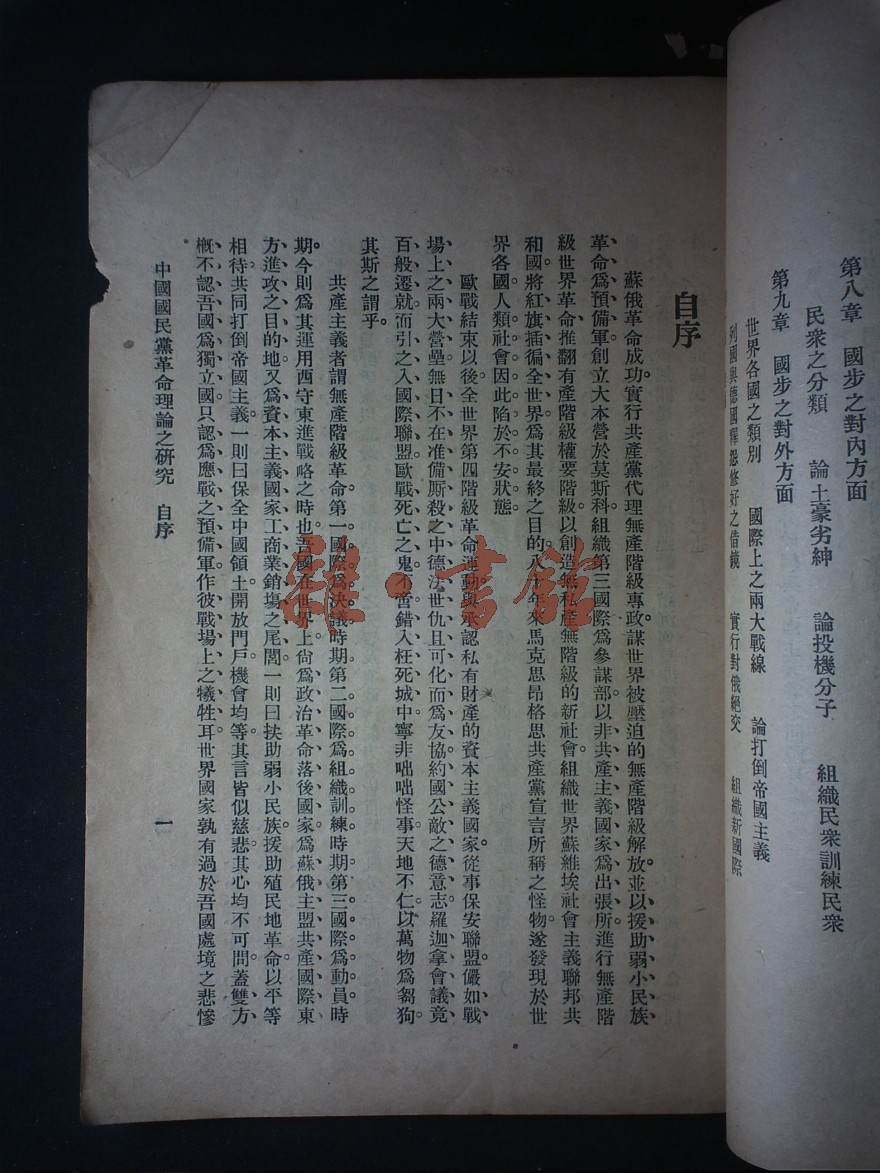 第八章　國步之對內方面
民衆之分類　論土豪劣紳　論投機分子　組織民衆訓練民衆
第九章　國步之對外方面
世界各國之類別　國際上之兩大戰線　論打倒帝國主義
列國與德國釋怨修好之借鏡　實行對俄絕交　組織新國際
自序
蘇俄革命成功。實行共產黨代理無產階級專政。謀世界被壓迫的無產階級解放。並以援助弱小民族、
革命、爲預備軍。創立大本營於莫斯科。組織第三國際爲參謀部。以非共產主義國家爲出張所。進行無產階
級世界革命。推翻有產階級權要階級。以創造無私產無階級的新社會。組織世界蘇維埃社會主義聯邦共
和國。將紅旗插徧全世界。爲其最終之目的。八十年來馬克思昂格思共產黨宣言所稱之怪物。遂發現於世
界各國。人類社會。因此陷於不安狀態。
歐戰結束以後。全世界第四階級革命運動。與承認私有財產的資本主義國家。從事保安聯盟。儼如戰、
場上之兩大營壘。無日不在准備厮殺之中。德法世仇。且可化而爲友。協約國公敵之德意志。羅迦拿會議。竟、
百般遷就。而引之入國際聯盟。歐戰死亡之鬼。不啻錯入枉死城中。寧非咄咄怪事。天地不仁。以萬物爲芻狗。
其斯之謂乎。
共產主義者謂無產階級革命。第一國際爲決議時期。第二國際爲組織訓練時期。第三國際爲動員時
期。今則爲其運用西守東進戰略之時也。吾國在世界上尙爲政治革命落後國家。爲蘇俄主盟共產國際東、
方進攻之目的地。又爲資本主義國家工商業銷塲之尾閭。一則曰扶助弱小民族。援助殖民地革命。以平等
相待。共同打倒帝國主義。一則曰保全中國領土。開放門戶。機會均等。其言皆似慈悲。其心均不可問。蓋雙方、
概不認吾國爲獨立國。只認爲應戰之預備軍。作彼戰場上之犧牲耳。世界國家孰有過於吾國處境之悲慘
中國國民黨革命理論之研究　自序
一
雒·書館